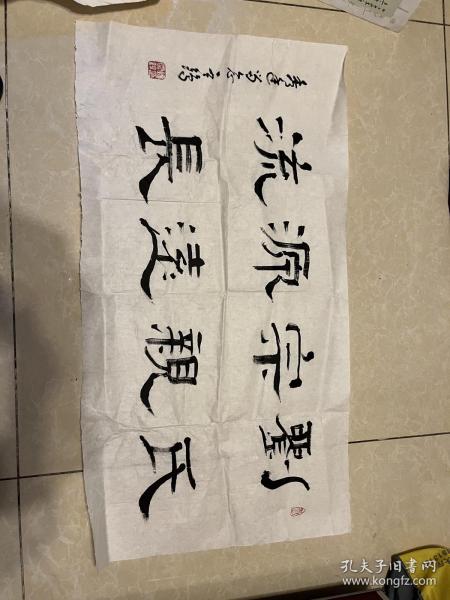 劉氏
宗親
源遠
流長
孔夫子旧书网
www.kongfz.com